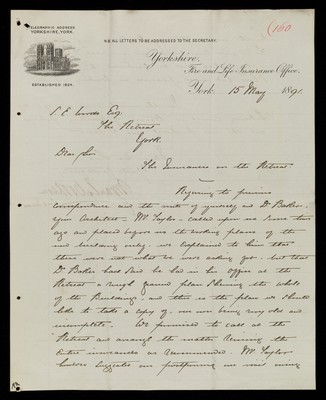 (160
TELEGRAPHIC ADDRESS
YORKSHIRE, YORK.
N.B. ALL LETTERS TO BE ADDRESSED TO THE SECRETARY.
Yorkshire,
Fire and Life Insurance Office,
ESTABLISHED 1824.
York 15 May 1891.
Esq
The Retreat
York.
Dear Sir
The Insurances on the Retreat.
Referring to previous
correspondence and the visits of yourself and Dr Baker,
your Architect, Mr Taylor, called upon us some time
ago and placed before us the working plans of the
new building only. We explained to him that
these were not what we were asking for, but that
Dr Baker had said he had in his office at the
Retreat a rough ground plan shewing the whole
of the Buildings, and this is the plan we should
like to take a copy of, our own being very old and
incomplete. We promised to call at the
Retreat and arrange the matter
Entire insurances as recommended. Mr Taylor
however suggested our postponing our visit owing